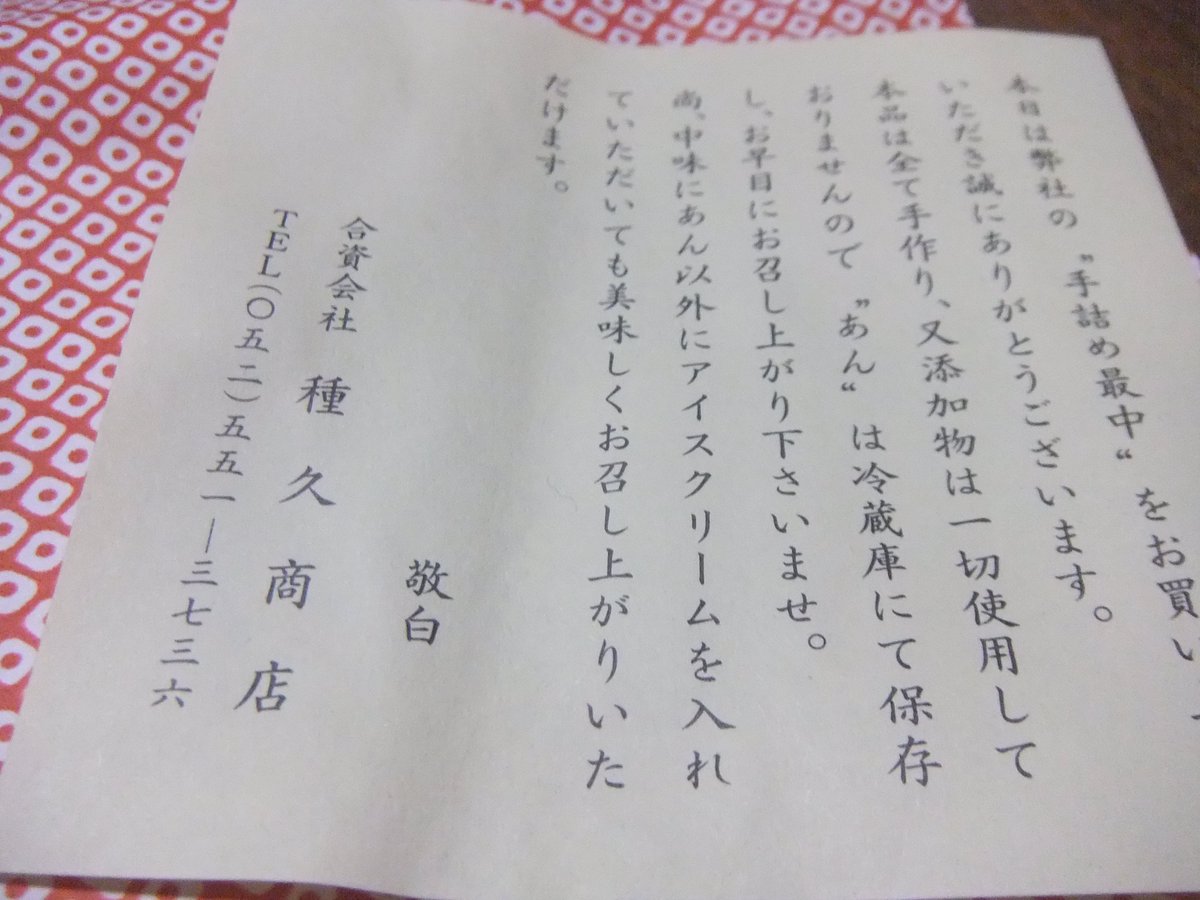 本日は弊社の〝手詰め最中〟をお買い
いただき誠にありがとうございます。
本品は全て手作り、又添加物は一切使用して
おりませんので〝あん〟は冷蔵庫にて保存
し、お早目にお召し上がり下さいませ。
尚、中味にあん以外にアイスクリームを入れ
ていただいても美味しくお召し上がりいた
だけます。
敬白
合資会社 種久商店
TEL(〇五二)五五一―三七三六